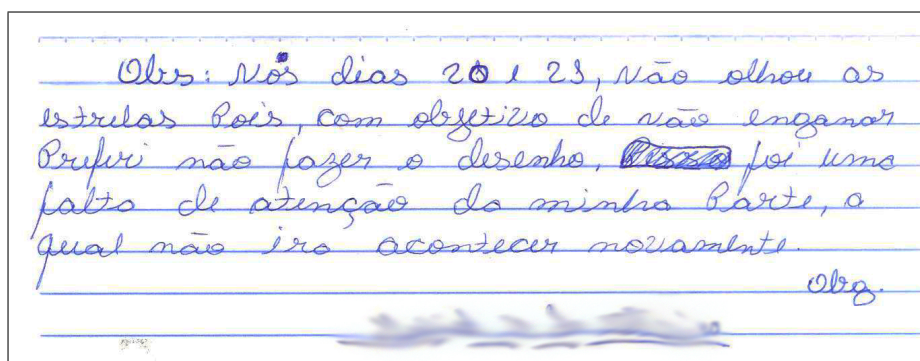 Obs: Nos dias 20 e 23, não olhou as
estrelas Pois, com objetivo de não enganar
Preferi não fazer o desenho, foi uma
falta de atenção da minha Parte, a
qual não ira acontecer novamente.
Obg.